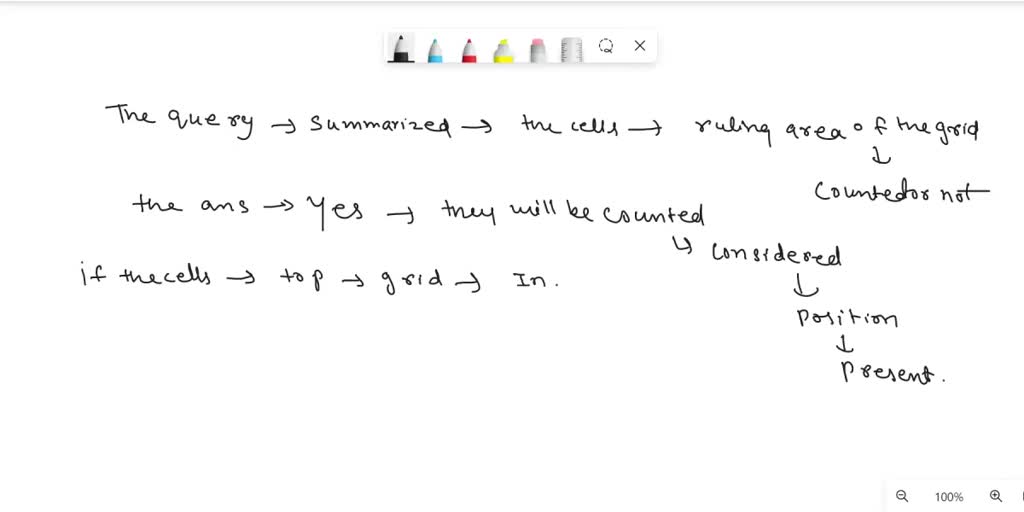 The query → summarized → the cells → ruling area of the grid
↓
Counted or not
the ans → Yes → they will be counted
↳ Considered
↓
Position
↓
Present.
if the cells → top → grid → In.
100%